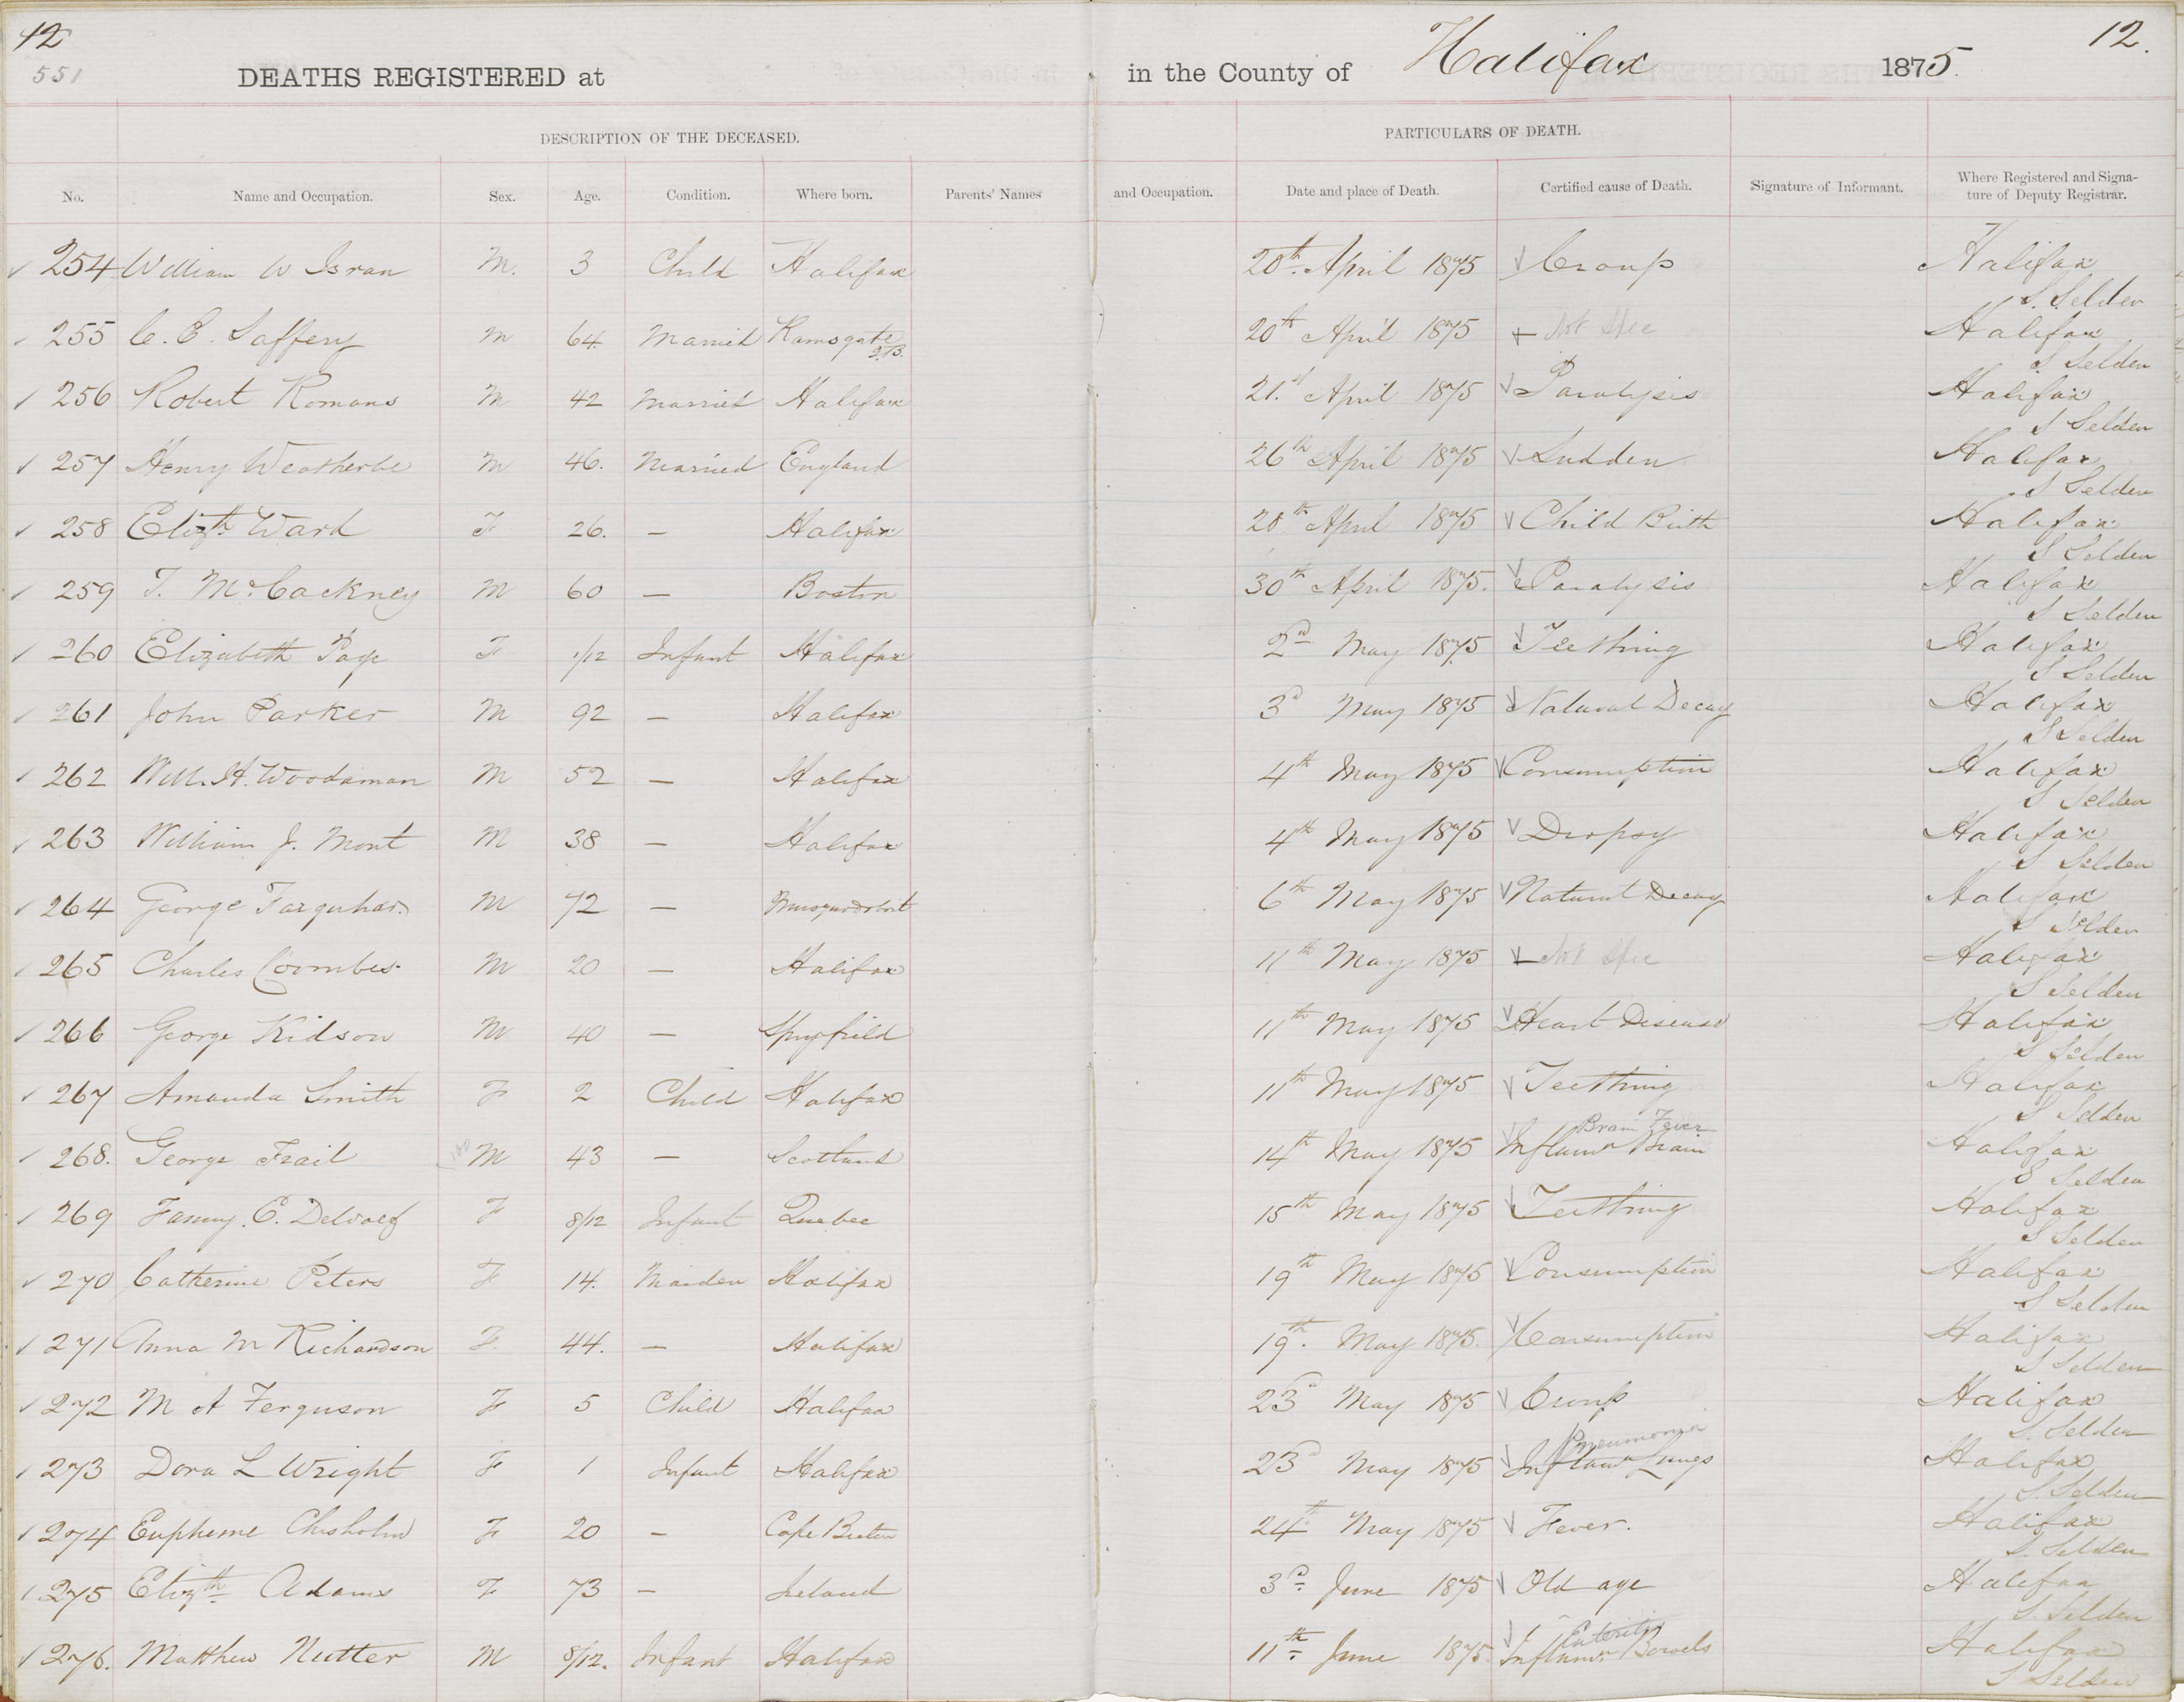 12
551
DEATHS REGISTERED at in the County of Halifax 1875.
12.
DESCRIPTION OF THE DECEASED. PARTICULARS OF DEATH.
No. Name and Occupation. Sex. Age. Condition. Where born. Parents' Names and Occupation. Date and place of Death. Certified cause of Death. Signature of Informant. Where Registered and Signa-
ture of Deputy Registrar.
254 William W Isran M. 3 Child Halifax 20th April 1875 Croup Halifax
S. Selden
255 C. C. Saffery M 64 Married Ramsgate 20th April 1875 — Not Spec Halifax
S Selden
256 Robert Romans M 42 Married Halifax 21st April 1875 Paralysis Halifax
S Selden
257 Henry Weatherbe M 46. Married England 26th April 1875 Sudden Halifax
S Selden
258 Elizth Ward F 26. — Halifax 28th April 1875 Child Birth Halifax
S Selden
259 T. McCackney M 60 — Boston 30th April 1875. Paralysis Halifax
S Selden
260 Elizabeth Page F 1/12 Infant Halifax 2nd May 1875 Teething Halifax
S Selden
261 John Parker M 92 — Halifax 3d May 1875 Natural Decay Halifax
S Selden
262 Will. H. Woodaman M 52 — Halifax 4th May 1875 Consumption Halifax
S Selden
263 William J. Mont M 38 — Halifax 4th May 1875 Dropsy Halifax
S Selden
264 George Farquhar. M 72 — Musquodoboit 6th May 1875 Natural Decay Halifax
S Selden
265 Charles Coombes M 20 — Halifax 11th May 1875 — Not Spec Halifax
S Selden
266 George Kidson M 40 — Spryfield 11th May 1875 Heart Disease Halifax
S Selden
267 Amanda Smith F 2 Child Halifax 11th May 1875 Teething Halifax
S Selden
Brain Fever
268. George Frail M 43 — Scotland 14th May 1875 Inflamn Brain Halifax
S Selden
269 Fanny E. Delwolf F 8/12 Infant Quebec 15th May 1875 Teething Halifax
S Selden
270 Catherine Peters F 14. Maiden Halifax 19th May 1875 Consumption Halifax
S Selden
271 Anna M Richardson F. 44. — Halifax 19th. May 1875. Consumption Halifax
S Selden
272 M A Ferguson F 5 Child Halifax 23d May 1875 Croup Halifax
S. Selden
Pneumonia
273 Dora L Wright F 1 Infant Halifax 23d May 1875 Inflamn Lungs Halifax
S. Selden
274 Eupheme Chisholm F 20 — Cape Breton 24th May 1875 Fever. Halifax
S. Selden
275 Elizth Adams F 73 — Ireland 3d June 1875 Old age Halifax
S. Selden
Enteritis
276. Matthew Nutter M 8/12. Infant Halifax 11th June 1875. Inflamn Bowels Halifax
S Selden